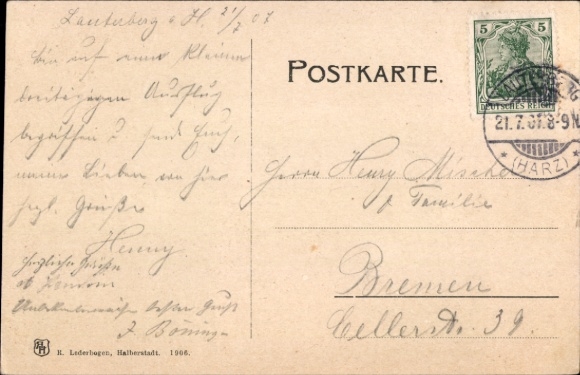 Lauterberg a H. 21/7 07
bin auf einer kleinen
Ausflug
begriffen u sende Euch,
meine Lieben, von hier
hrzl. Grüße
Henny
herzliche Grüße
bester Gruß
POSTKARTE.
5 5
DEUTSCHES REICH
21.7.07.8-9N
* (HARZ) *
Herrn Henry
& Familie
Bremen
Cellerstr. 39.
R. Lederbogen, Halberstadt. 1906.